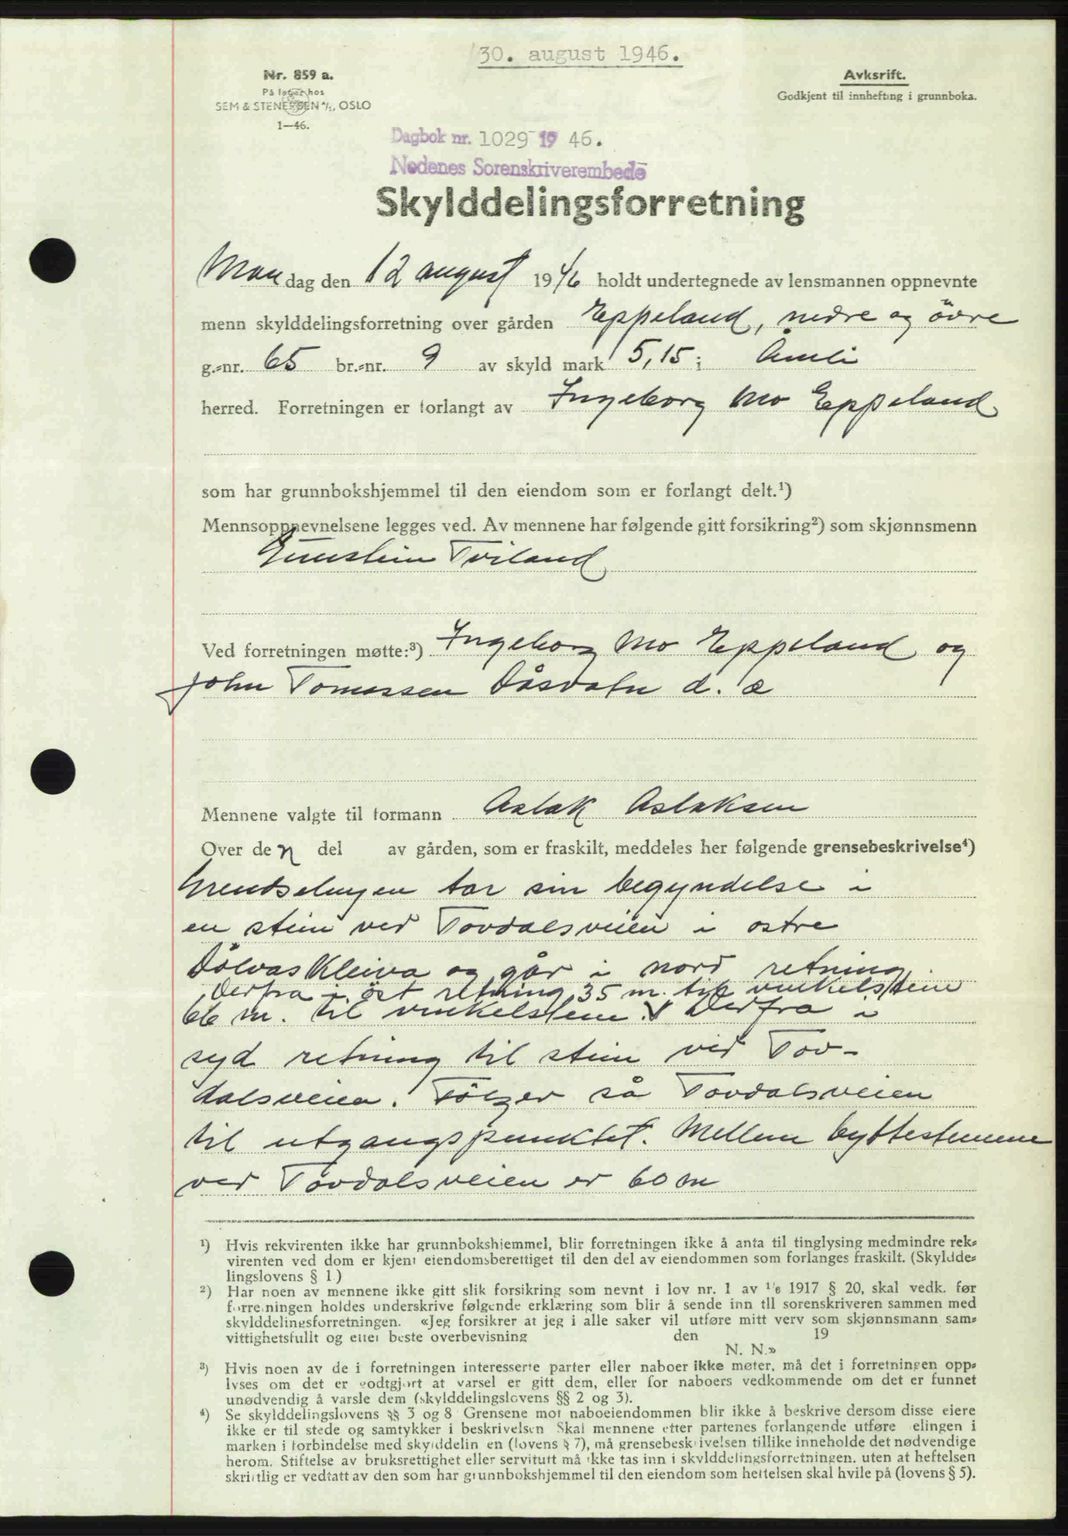 30. august 1946.
Nr. 859 a.
På lager hos
SEM & STENERSEN A/S, OSLO
1—46.
Avksrift.
Godkjent til innhefting i grunnboka.
Dagbok nr. 1029 19 46.
Nedenes Sorenskriverembede
Skylddelingsforretning
Mandag den 12 august 1946 holdt undertegnede av lensmannen oppnevnte
menn skylddelingsforretning over gården Eppeland, nedre og övre
g.-nr. 65 br.-nr. 9 av skyld mark 5,15 i Åmli
herred. Forretningen er forlangt av Ingeborg Mo Eppeland
som har grunnbokshjemmel til den eiendom som er forlangt delt.¹)
Mennsoppnevnelsene legges ved. Av mennene har følgende gitt forsikring²) som skjønnsmenn
Gunstein Tviland
Ved forretningen møtte:³) Ingeborg Mo Eppeland og
John Tomassen Dåsvatn d. e
Mennene valgte til formann Aslak Aslaksen
Over den del av gården, som er fraskilt, meddeles her følgende grensebeskrivelse⁴)
tar sin begyndelse i
en stein ved Tovdalsveien i østre
Dölvaskleiva og går i nord retning
Derfra i öst retning 35 m. til vinkelstein
66 m. til vinkelstein. V Derfra i
syd retning til stein ved Tov-
dalsveien. Fölger så Tovdalsveien
til utgangspunktet. Mellem byttesteinene
ved Tovdalsveien er 60 m
¹) Hvis rekvirenten ikke har grunnbokshjemmel, blir forretningen ikke å anta til tinglysing medmindre rek-
virenten ved dom er kjent eiendomsberettiget til den del av eiendommen som forlanges fraskilt. (Skyldde-
lingslovens § 1)
²) Har noen av mennene ikke gitt slik forsikring som nevnt i lov nr. 1 av 1/6 1917 § 20, skal vedk. før
forretningen holdes underskrive følgende erklæring som blir å sende inn til sorenskriveren sammen med
skylddelingsforretningen. «Jeg forsikrer at jeg i alle saker vil utføre mitt verv som skjønnsmann sam-
vittighetsfullt og etter beste overbevisning den 19
N. N.»
³) Hvis noen av de i forretningen interesserte parter eller naboer ikke møter, må det i forretningen opp-
lyses om det er godtgjort at varsel er gitt dem, eller for naboers vedkommende om det er funnet
unødvendig å varsle dem (skylddelingslovens §§ 2 og 3).
⁴) Se skylddelingslovens §§ 3 og 8 Grensene mot naboeiendommen blir ikke å beskrive dersom disse eiere
ikke er til stede og samtykker i beskrivelsen Skal mennene etter partenes forlangende utføre delingen i
marken i forbindelse med skylddelingen (lovens § 7), må grensebeskrivelsen tillike inneholde det nødvendige
herom. Stiftelse av bruksrettighet eller servitutt må ikke tas inn i skylddelingsforretningen, uten at heftelsen
skriftlig er vedtatt av den som har grunnbokshjemmel til den eiendom som heftelsen skal hvile på (lovens § 5).